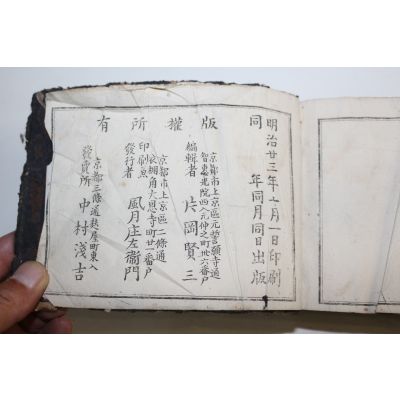 明治廿三年七月一日印刷
同年同月同日出版
版權所有
京都市上京區元誓願寺通
智惠光院西入元仲之町卅六番戸
編輯者 片岡賢三
京都市上京區二條通
衣棚角大恩寺町廿一番戸
印刷兼
發行者 風月庄左衞門
京都三條通麩屋町東入
發賣所 中村淺吉